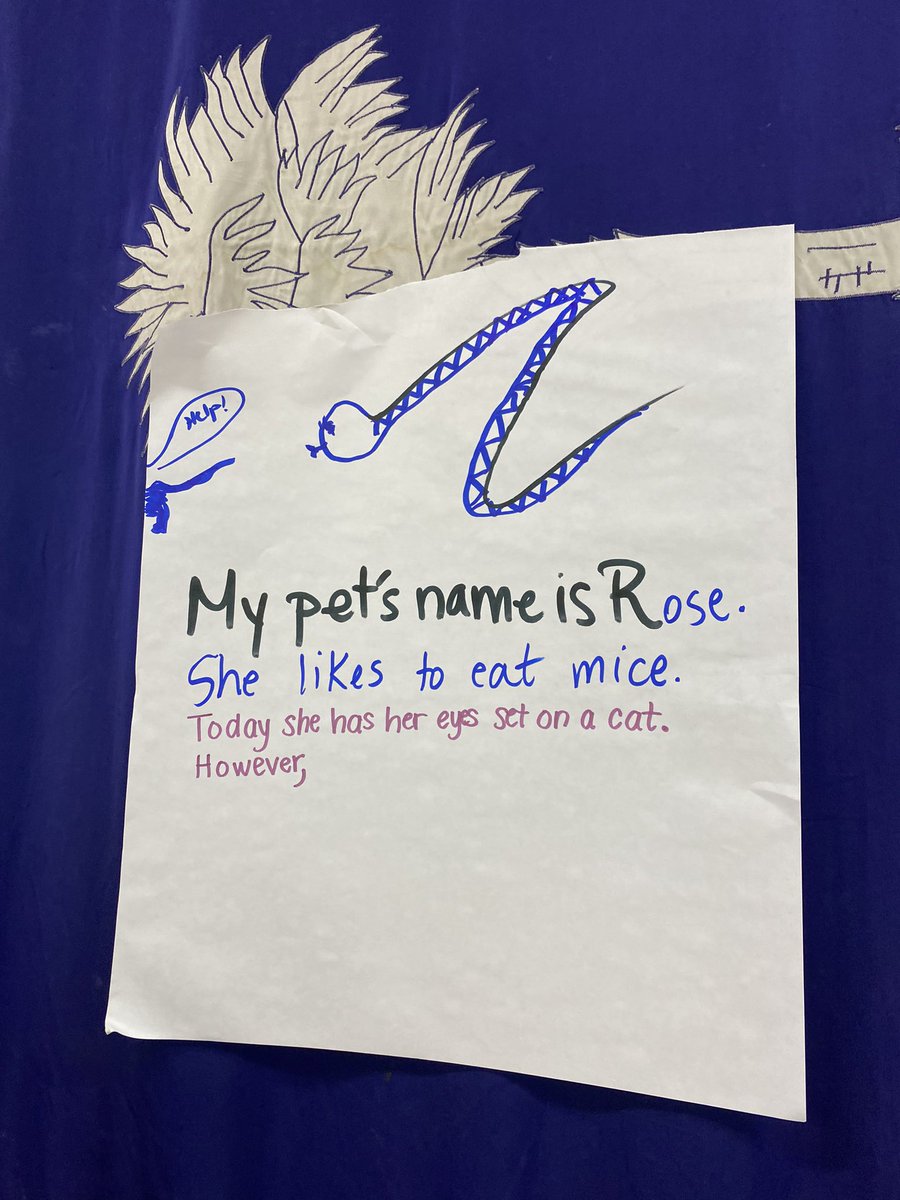 Help!
My pet's name is Rose.
She likes to eat mice.
Today she has her eyes set on a cat.
However,